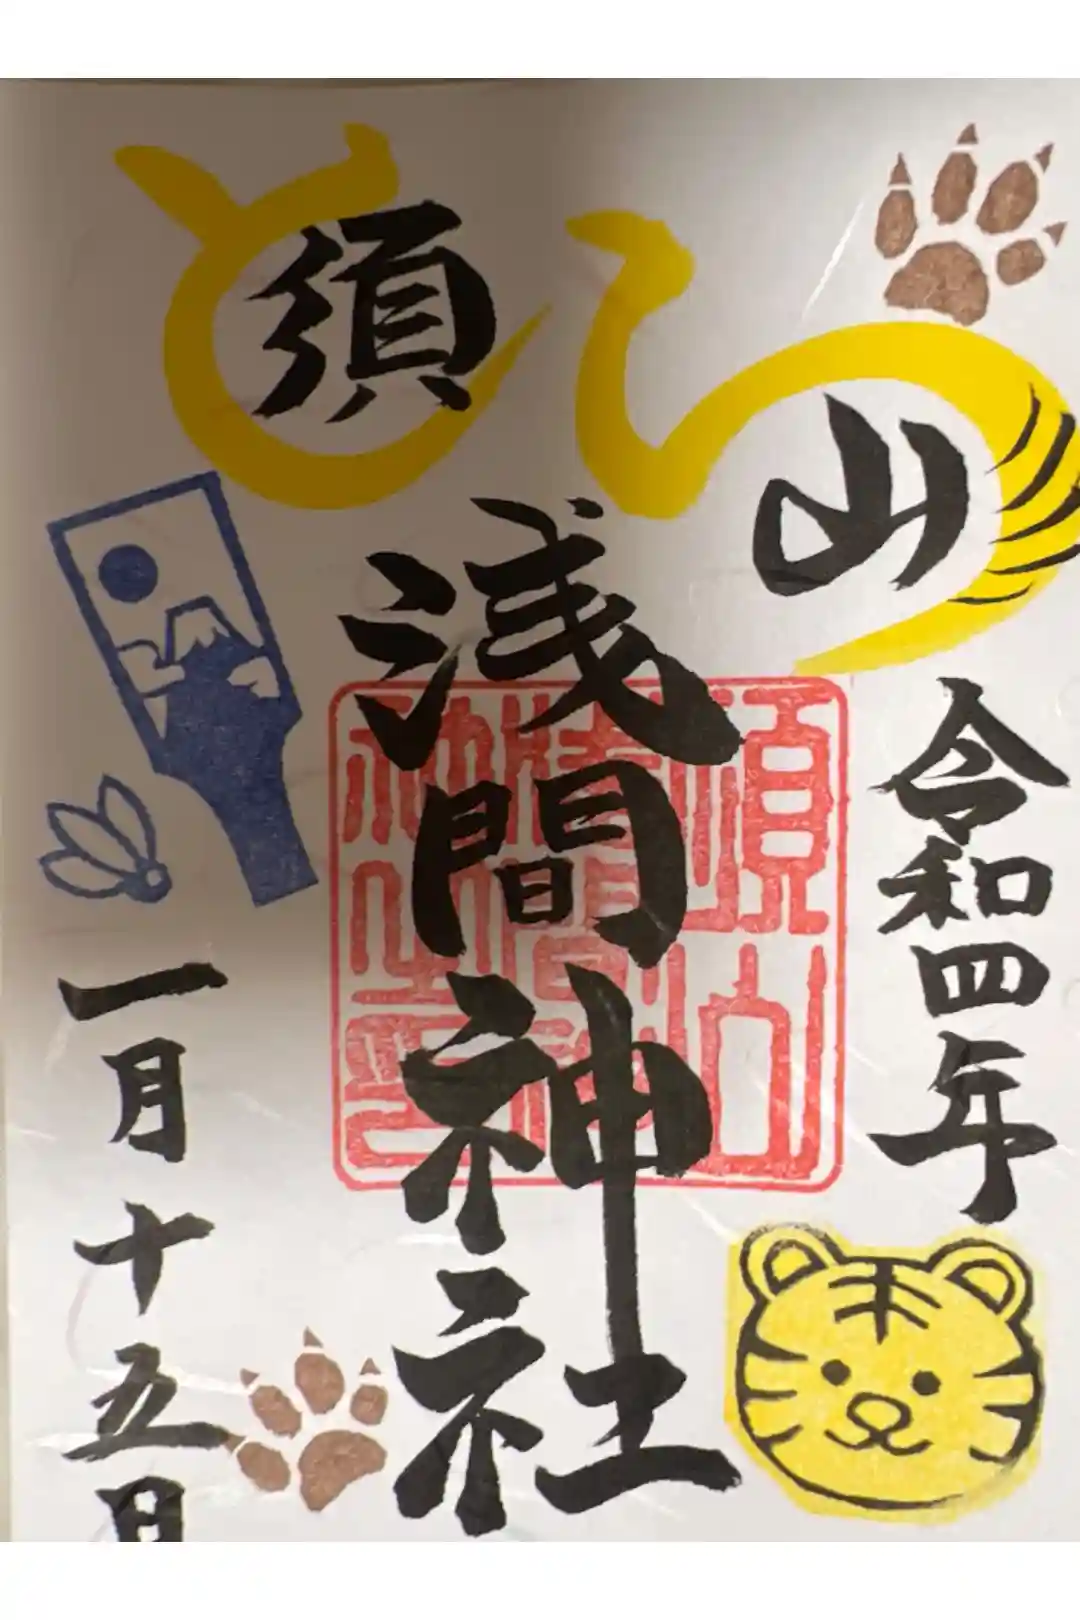 とら
令和四年
須山
浅間神社
須山
浅間神
社
一月十五日